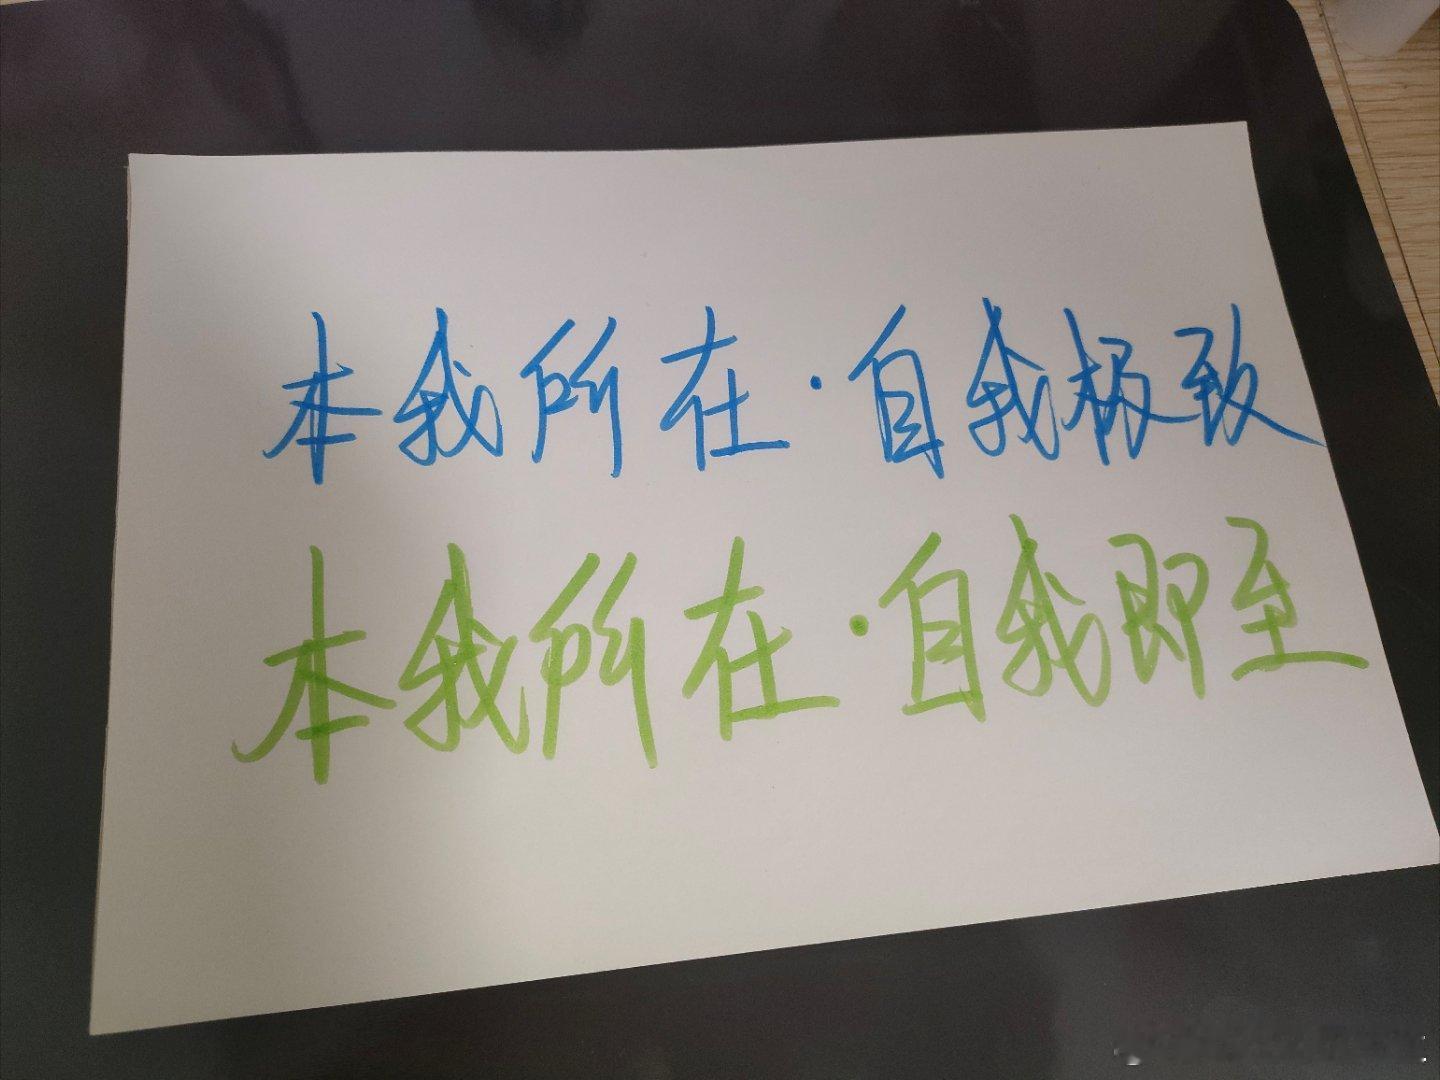 本我所在·自我极致
本我所在·自我即至